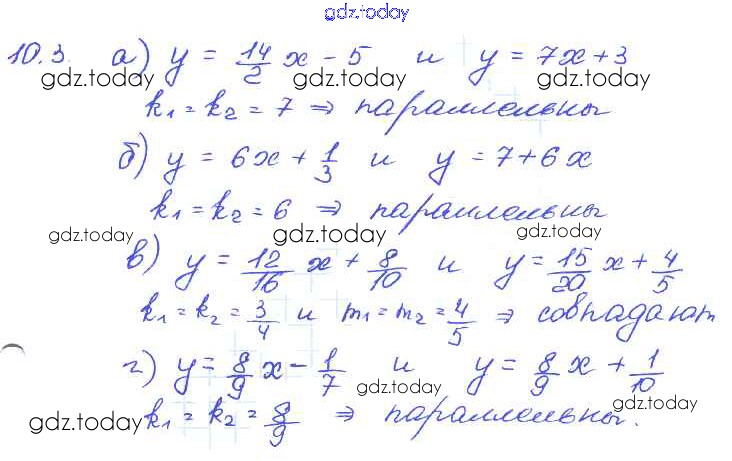 gdz.today
10.3. а) y = 14/2 x - 5 и y = 7x + 3
gdz.today gdz.today gdz.today
k₁ = k₂ = 7 ⇒ параллельны
б) y = 6x + 1/3 и y = 7 + 6x
k₁ = k₂ = 6 ⇒ параллельны
gdz.today gdz.today gdz.today
в) y = 12/16 x + 8/10 и y = 15/20 x + 4/5
k₁ = k₂ = 3/4 и m₁ = m₂ = 4/5 ⇒ совпадают
г) y = 8/9 x - 1/7 и y = 8/9 x + 1/10
gdz.today gdz.today gdz.today
k₁ = k₂ = 8/9 ⇒ параллельны.